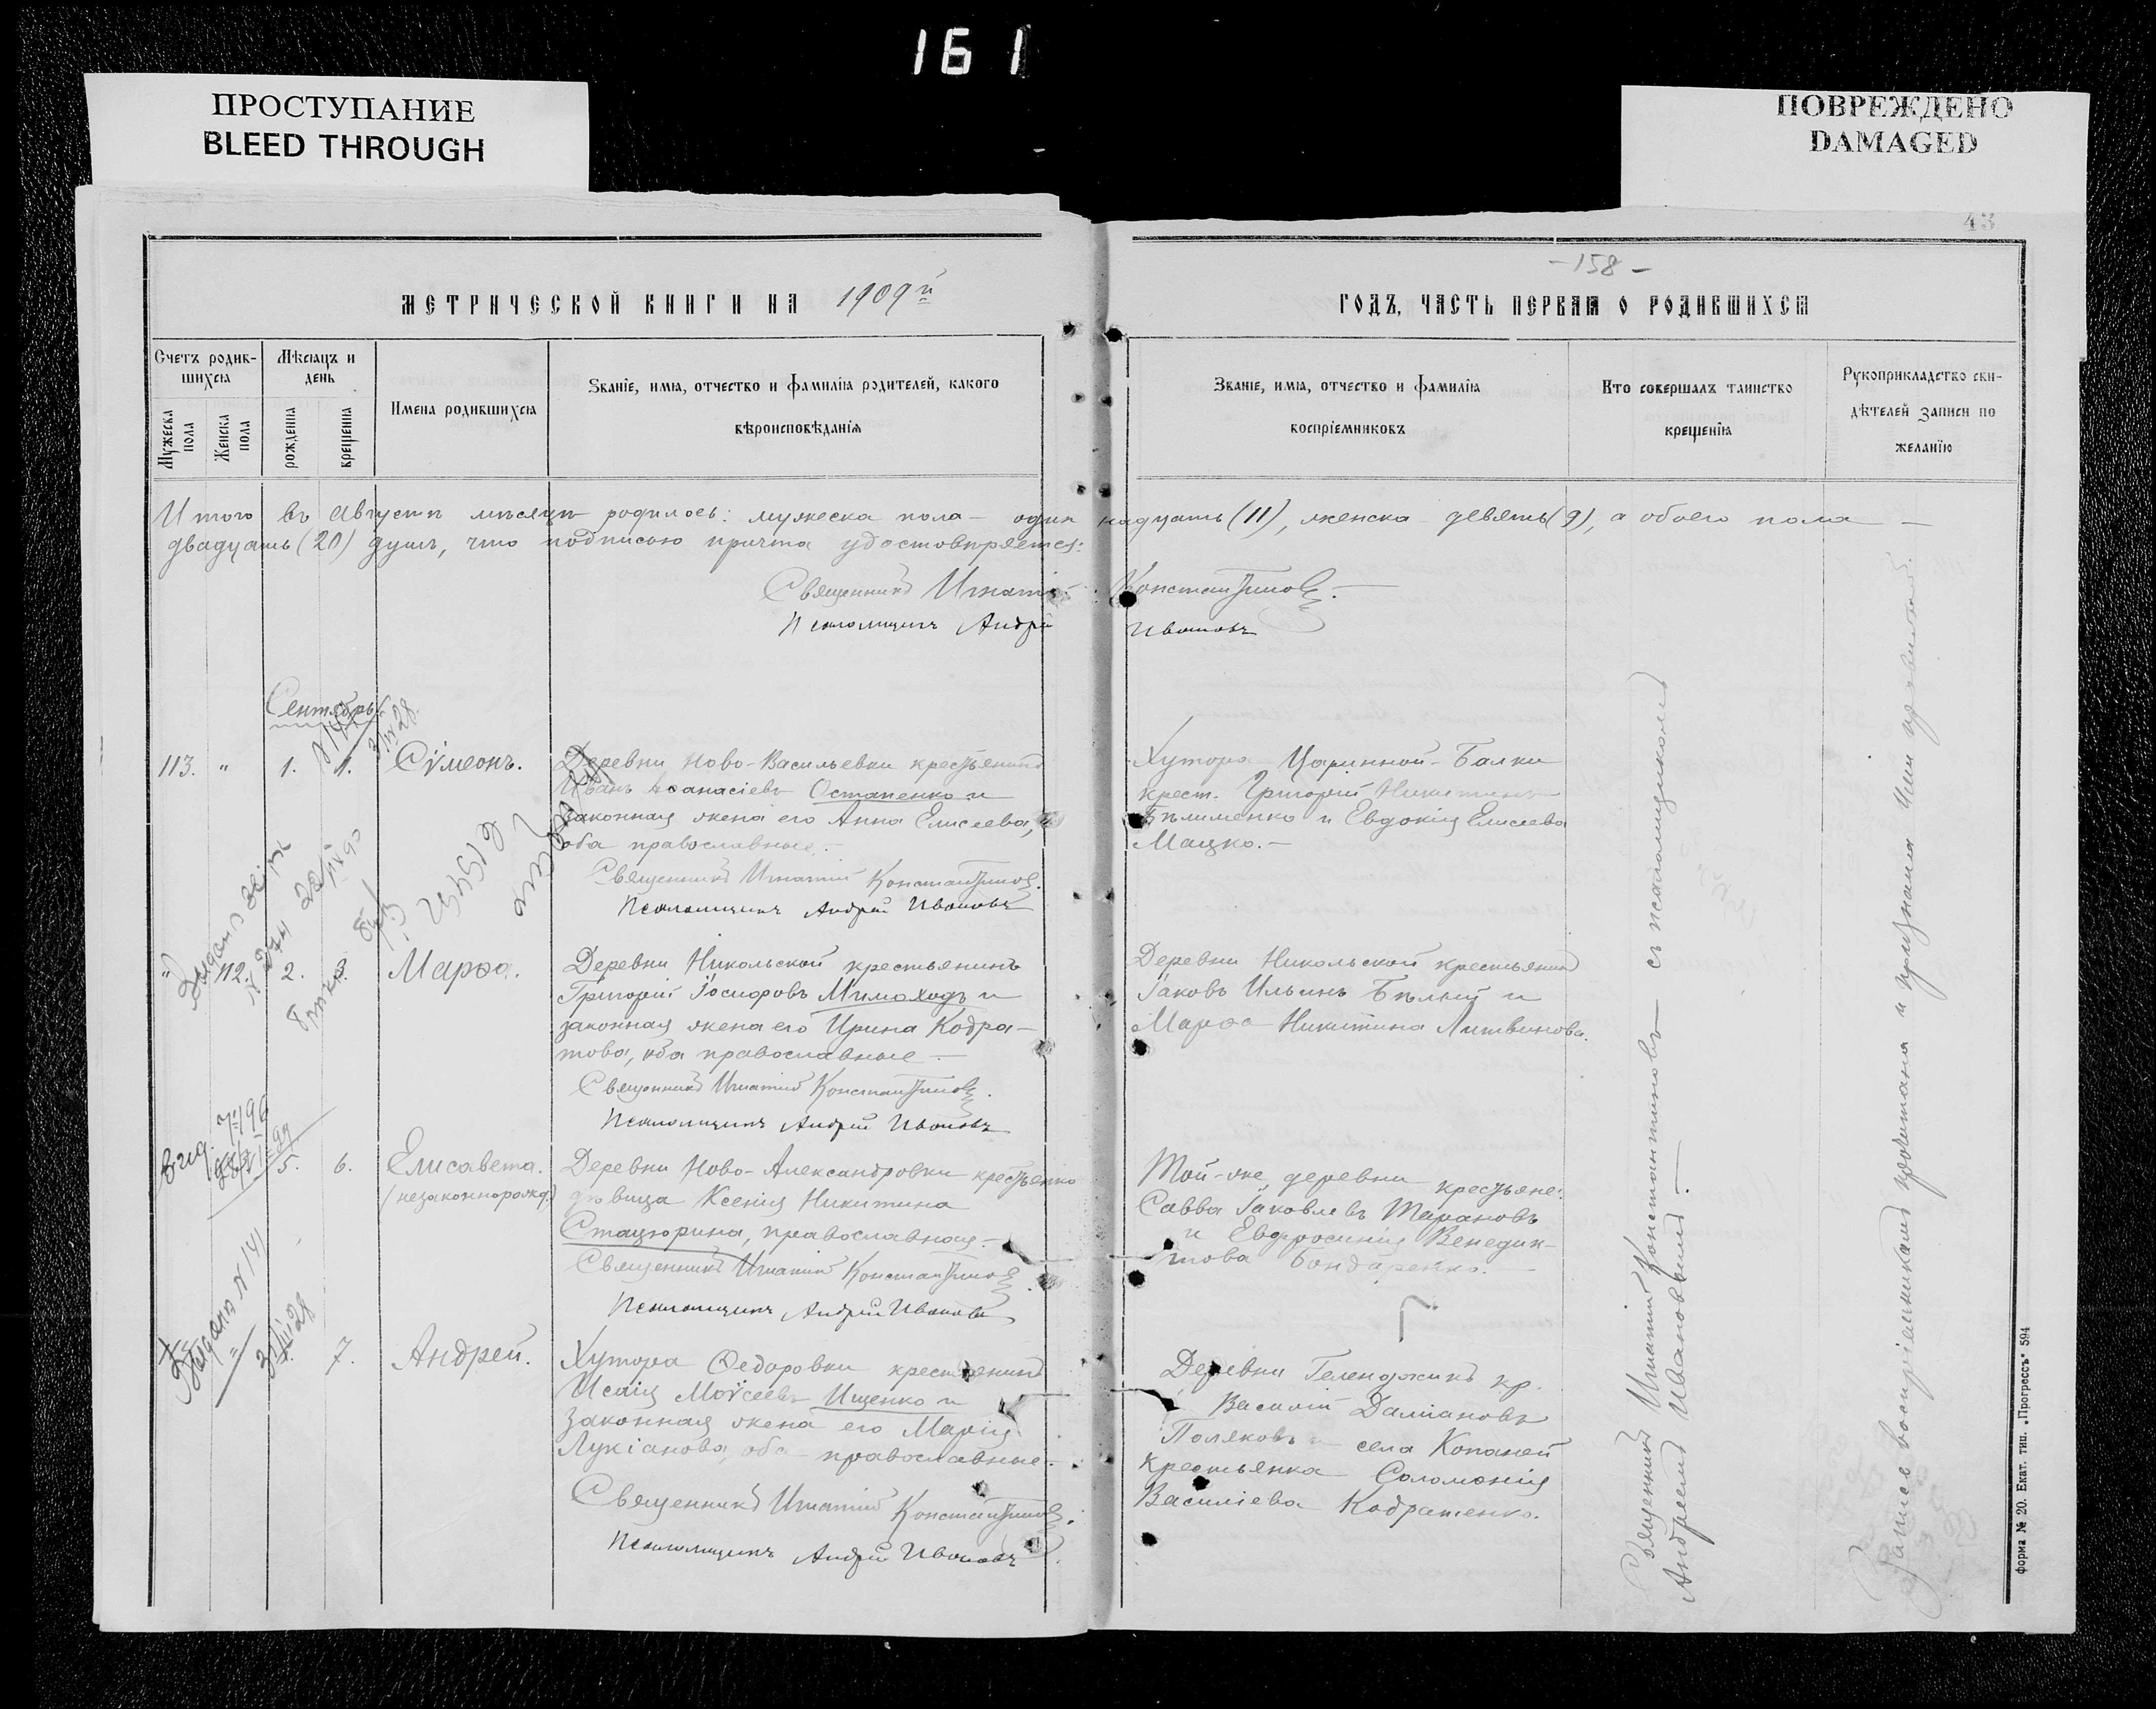 161
ПРОСТУПАНИЕ
BLEED THROUGH
ПОВРЕЖДЕНО
DAMAGED
43
-158-
МЕТРИЧЕСКОЙ КНИГИ НА 1909й
ГОДЪ, ЧАСТЬ ПЕРВАЯ О РОДИВШИХСЯ
Счетъ родив-
шихся
Мужеска пола
Женска пола
Мѣсяцъ и
день
рожденія
крещенія
Имена родившихся
Званіе, имя, отчество и фамилія родителей, какого
вѣроисповѣданія
Званіе, имя, отчество и фамилія
воспріемниковъ
Кто совершалъ таинство
крещенія
Рукоприкладство сви-
дѣтелей записи по
желанію
Итого въ Августѣ мѣсяцѣ родилось: мужеска пола – одиннадцать (11), женска девять (9), а обоего пола –
двадцать (20) душъ, что подписью причта удостовѣряется:
Священникъ Игнатій Константиновъ.
Псаломщикъ Андрей Ивановъ
Сентябрь.
113. " 1. 1. Сѵмеонъ.
Деревни Ново-Васильевки крестьянинъ
Иванъ Аѳанасіевъ Остапенко и
законная жена его Анна Елисеева,
оба православные.-
Священникъ Игнатій Константиновъ.
Псаломщикъ Андрей Ивановъ
Хутора Царинной-Балки
крест. Григорій Никитинъ
Бѣлименко и Евдокія Елисеева
Мацко.-
" 112. 2. 3. Марѳа.
Деревни Никольской крестьянинъ
Григорій Іосифовъ Мимоходъ и
законная жена его Ирина Кодра-
това, оба православные –
Священникъ Игнатій Константиновъ.
Псаломщикъ Андрей Ивановъ
Деревни Никольской крестьянинъ
Іаковъ Ильинъ Бѣлый и
Марѳа Никитина Литвинова.
5. 6. Елисавета.
(незаконнорожд.)
Деревни Ново-Александровки крестьянка
дѣвица Ксенія Никитина
Стацюрина, православная.-
Священникъ Игнатій Константиновъ.
Псаломщикъ Андрей Ивановъ
Той-же деревни крестьяне:
Савва Іаковлевъ Тарановъ
и Евфросинія Венедик-
това Бондаренко.-
Выдано № 141
7. Андрей.
Хутора Ѳедоровки крестьянинъ
Исаія Моѵсеевъ Ищенко и
законная жена его Марія
Лукіанова, оба православные.-
Священникъ Игнатій Константиновъ.
Псаломщикъ Андрей Ивановъ
Деревни Геленджикъ кр.
Василій Даміановъ
Поляковъ и села Копаней
крестьянка Соломонія
Василіева Кодратенко.
Священникъ Игнатій Константиновъ – съ псаломщикомъ
Андреемъ Ивановымъ.-
Запись воспріемниками прочитана и признана ими правильной.
форма № 20. Екат. тип. „Прогрессъ" 594